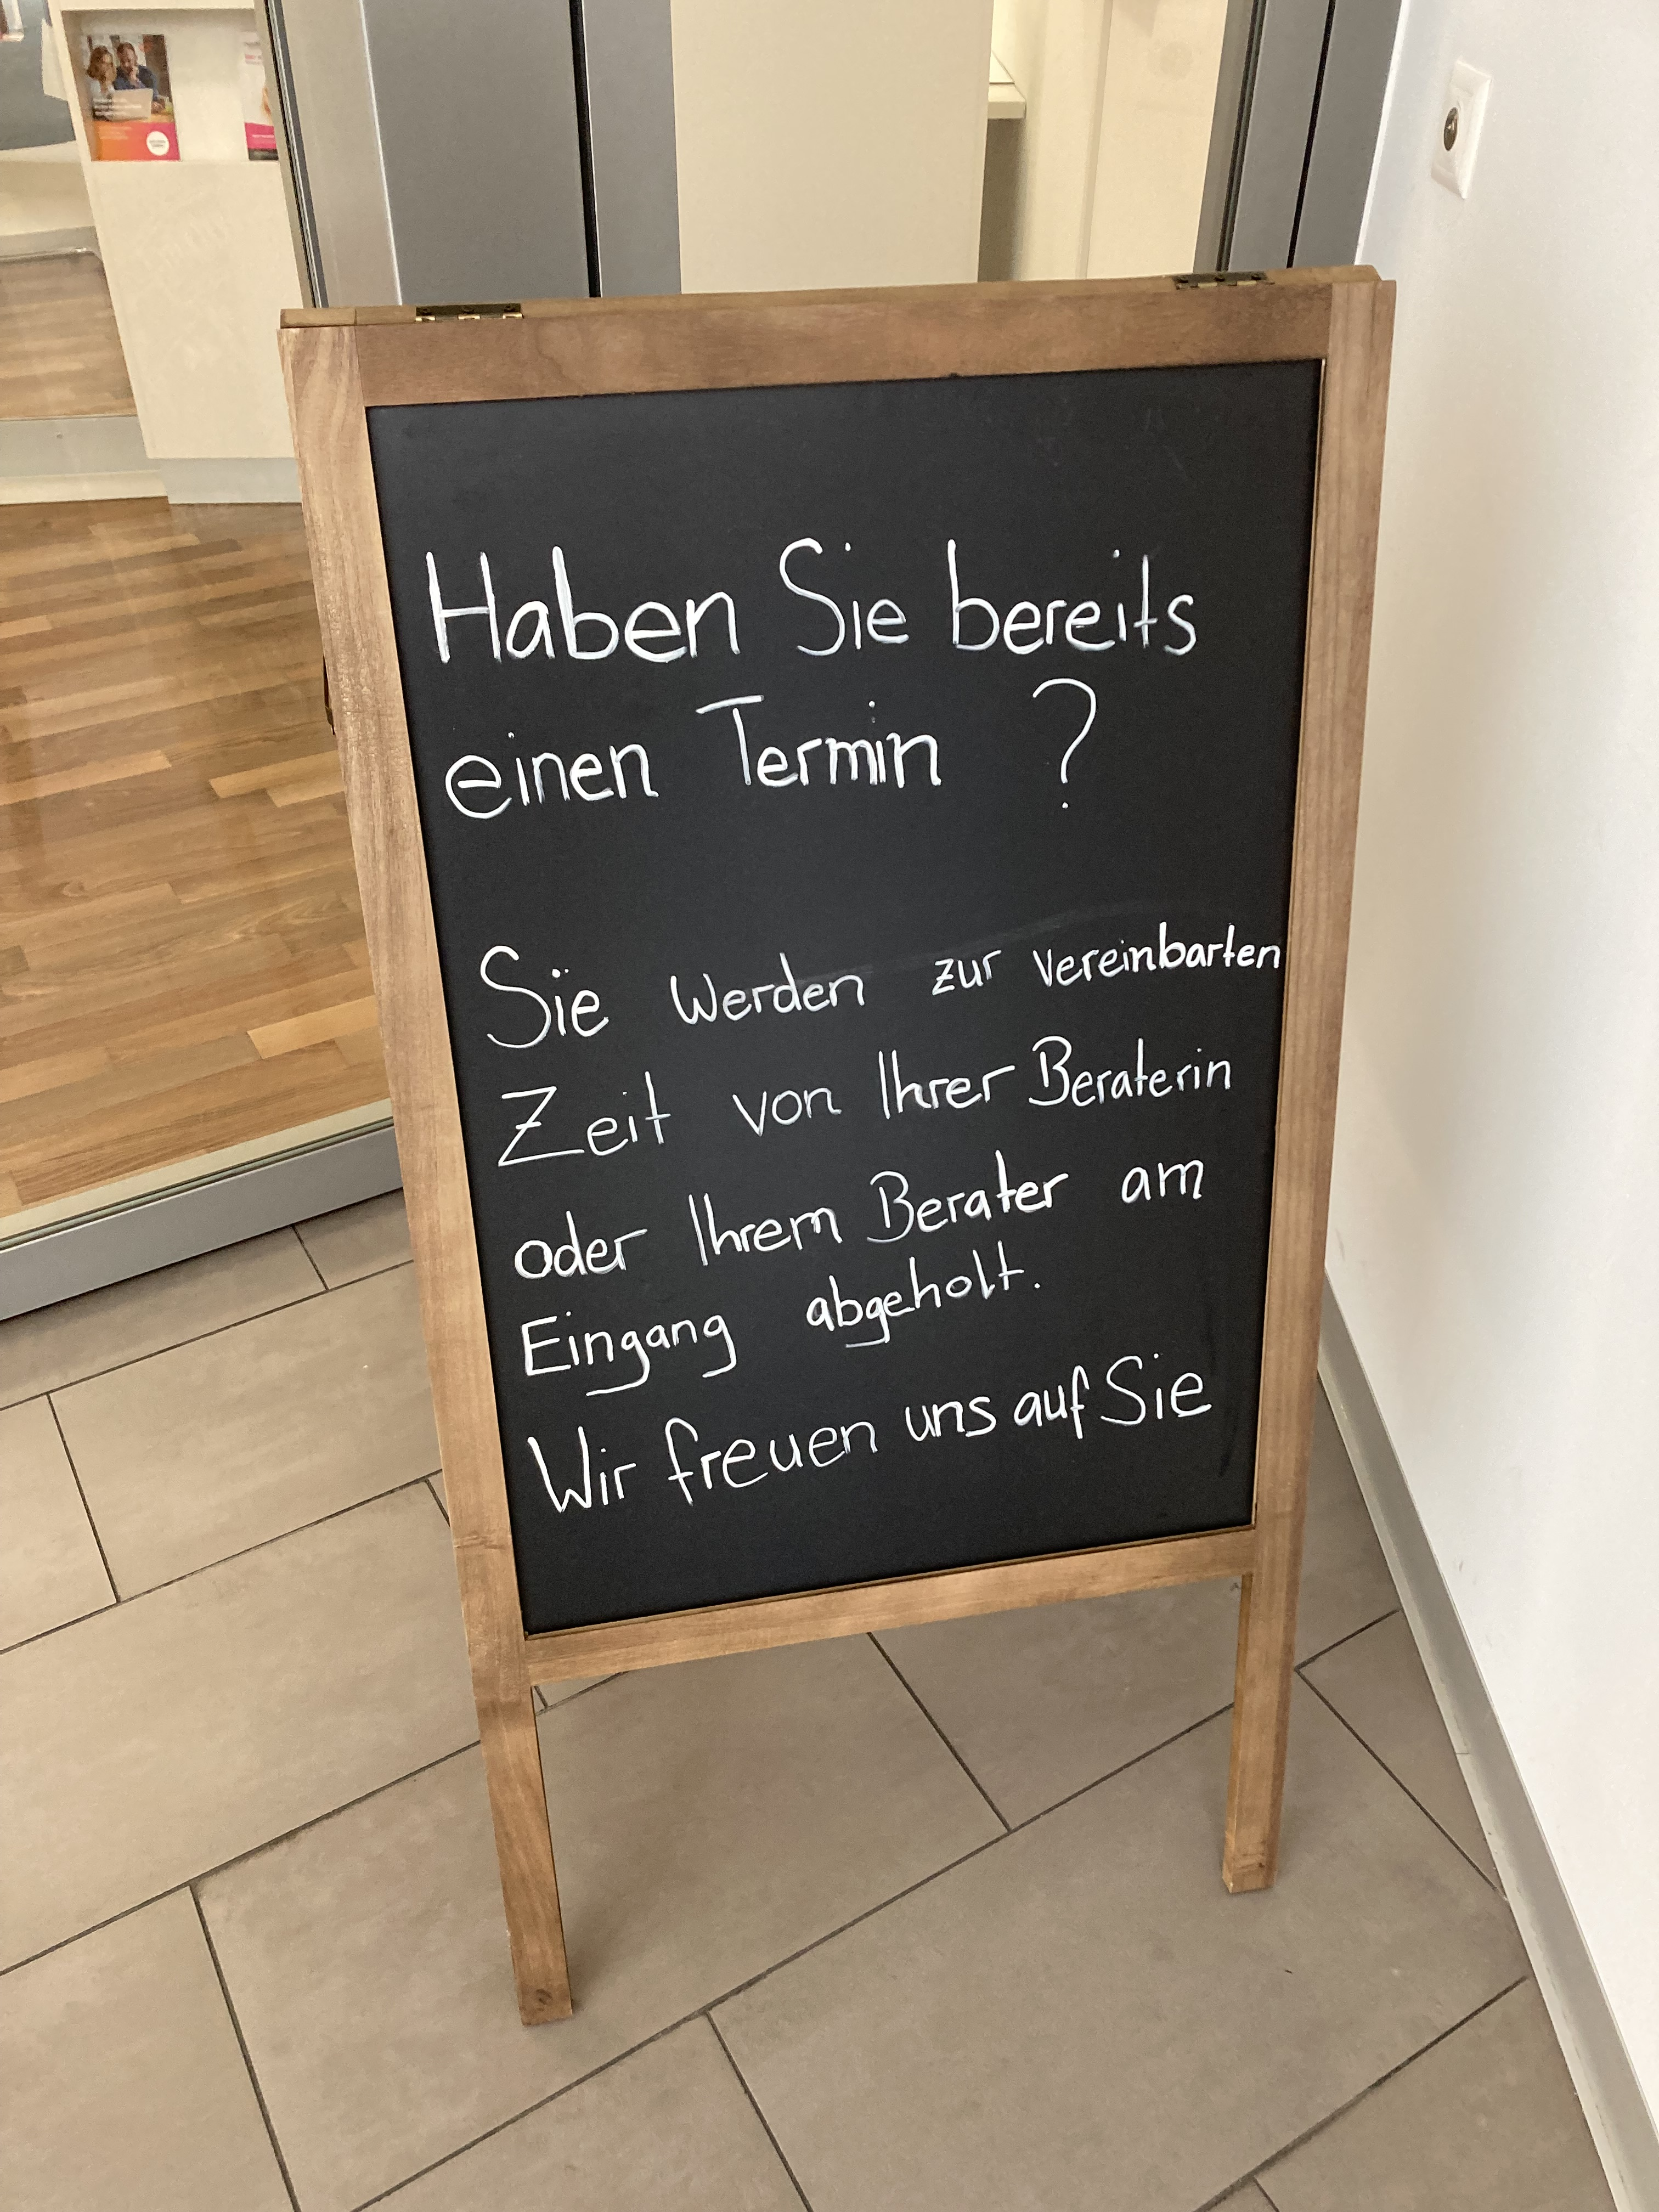 Haben Sie bereits
einen Termin ?
Sie werden zur vereinbarten
Zeit von Ihrer Beraterin
oder Ihrem Berater am
Eingang abgeholt.
Wir freuen uns auf Sie